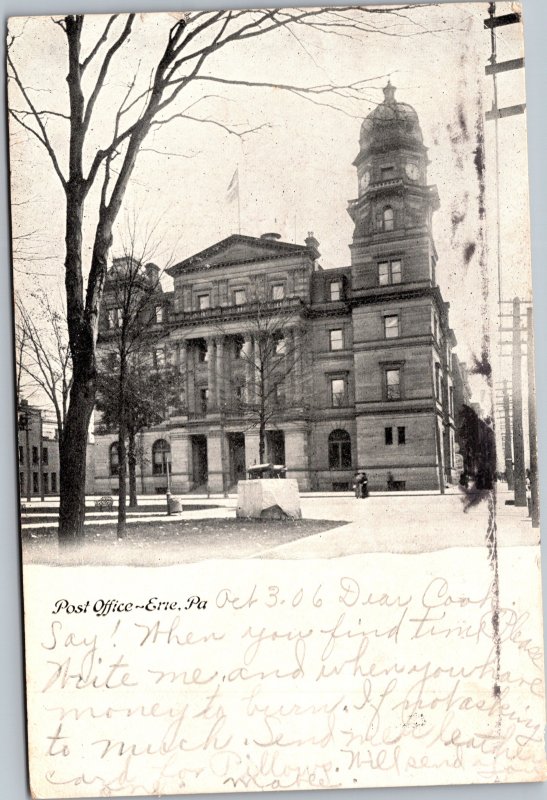 Post Office - Erie, Pa Oct 3. 06 Dear Cook
Say! When you find time Please
Write me and when you have
money to burn. If not asking
to much. Send me a leather
card for Pillows. Will send you
one. Marie.